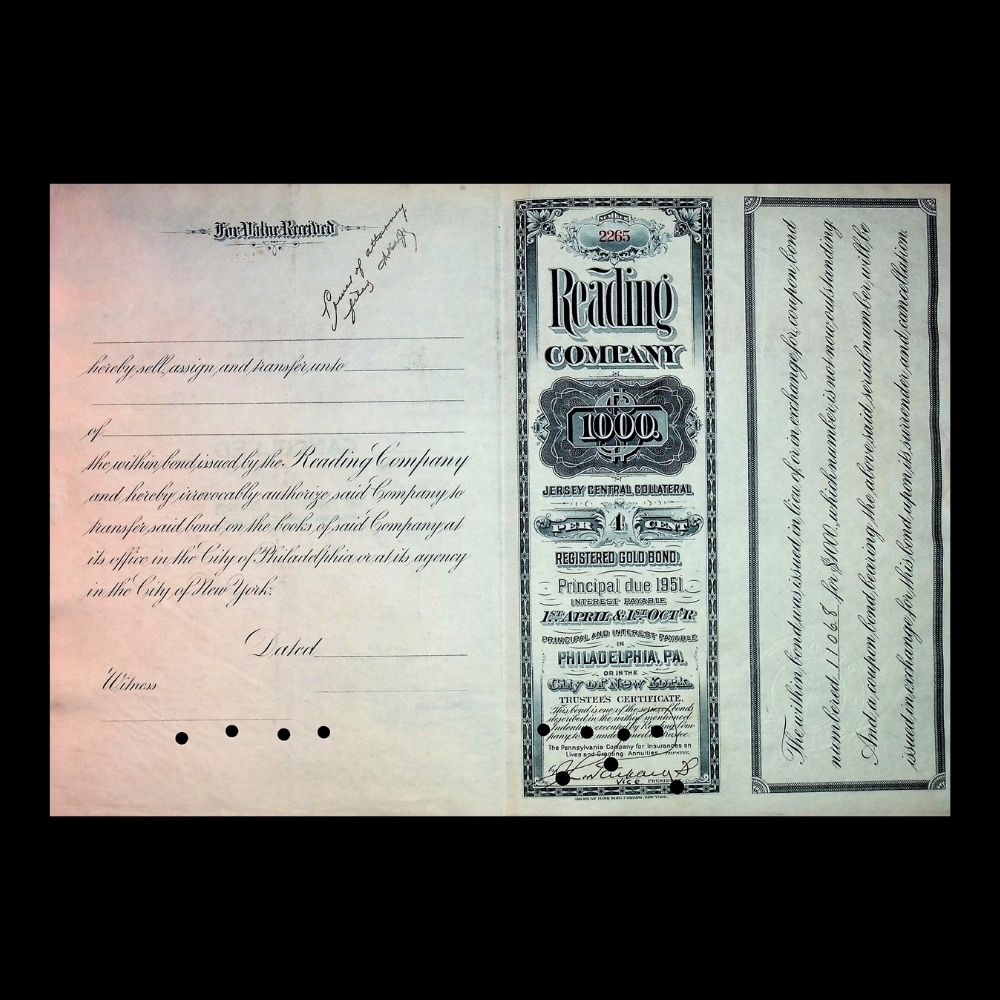 For Value Received
Power of attorney
filed
hereby sell, assign, and transfer, unto
of
the within bond issued by the Reading Company
and hereby irrevocably authorize said Company to
transfer said bond on the books of said Company at
its office in the City of Philadelphia or at its agency
in the City of New York.
Dated
Witness
NUMBER
2265
Reading
COMPANY
$
1000.
JERSEY CENTRAL COLLATERAL
PER 4 CENT
REGISTERED GOLD BOND,
Principal due 1951.
INTEREST PAYABLE
1ST APRIL & 1ST OCT'R
PRINCIPAL AND INTEREST PAYABLE
IN
PHILADELPHIA, PA.
OR IN THE
City of New York.
TRUSTEE'S CERTIFICATE.
This bond is one of the series of bonds
described in the within mentioned
Indenture executed by Reading Com-
pany to the undersigned as Trustee.
The Pennsylvania Company for Insurances on
Lives and Granting Annuities, TRUSTEE,
By
VICE PRESIDENT
AMERICAN BANK NOTE COMPANY, NEW YORK.
The within bond was issued in lieu of or in exchange for, coupon bond
numbered 11068 for $1000, which number is not now outstanding
And a coupon bond bearing the above said serial number will be
issued in exchange for this bond upon its surrender and cancellation.